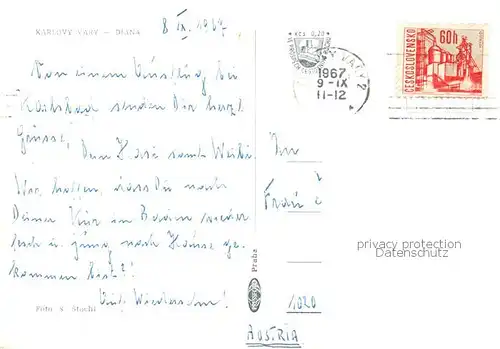 KARLOVY VARY — DIANA
8 IX. 1967
Von einem Ausflug bei
Karlsbad senden Dir herzl.
Grüsse,
Dein Hasi samt Weibi.
Wir hoffen, dass Du nach
Deiner Kur in Baden wieder
fesch u. jung nach Hause ge-
kommen bist?!
Auf Wiedersehn!
Foto S. Stuchl
Praha
KČS 0,20
VARY 2
1967
9-IX
11-12
ČESKOSLOVENSKO
60h
An
Frau
privacy protection
Datenschutz
1020
AUSTRIA